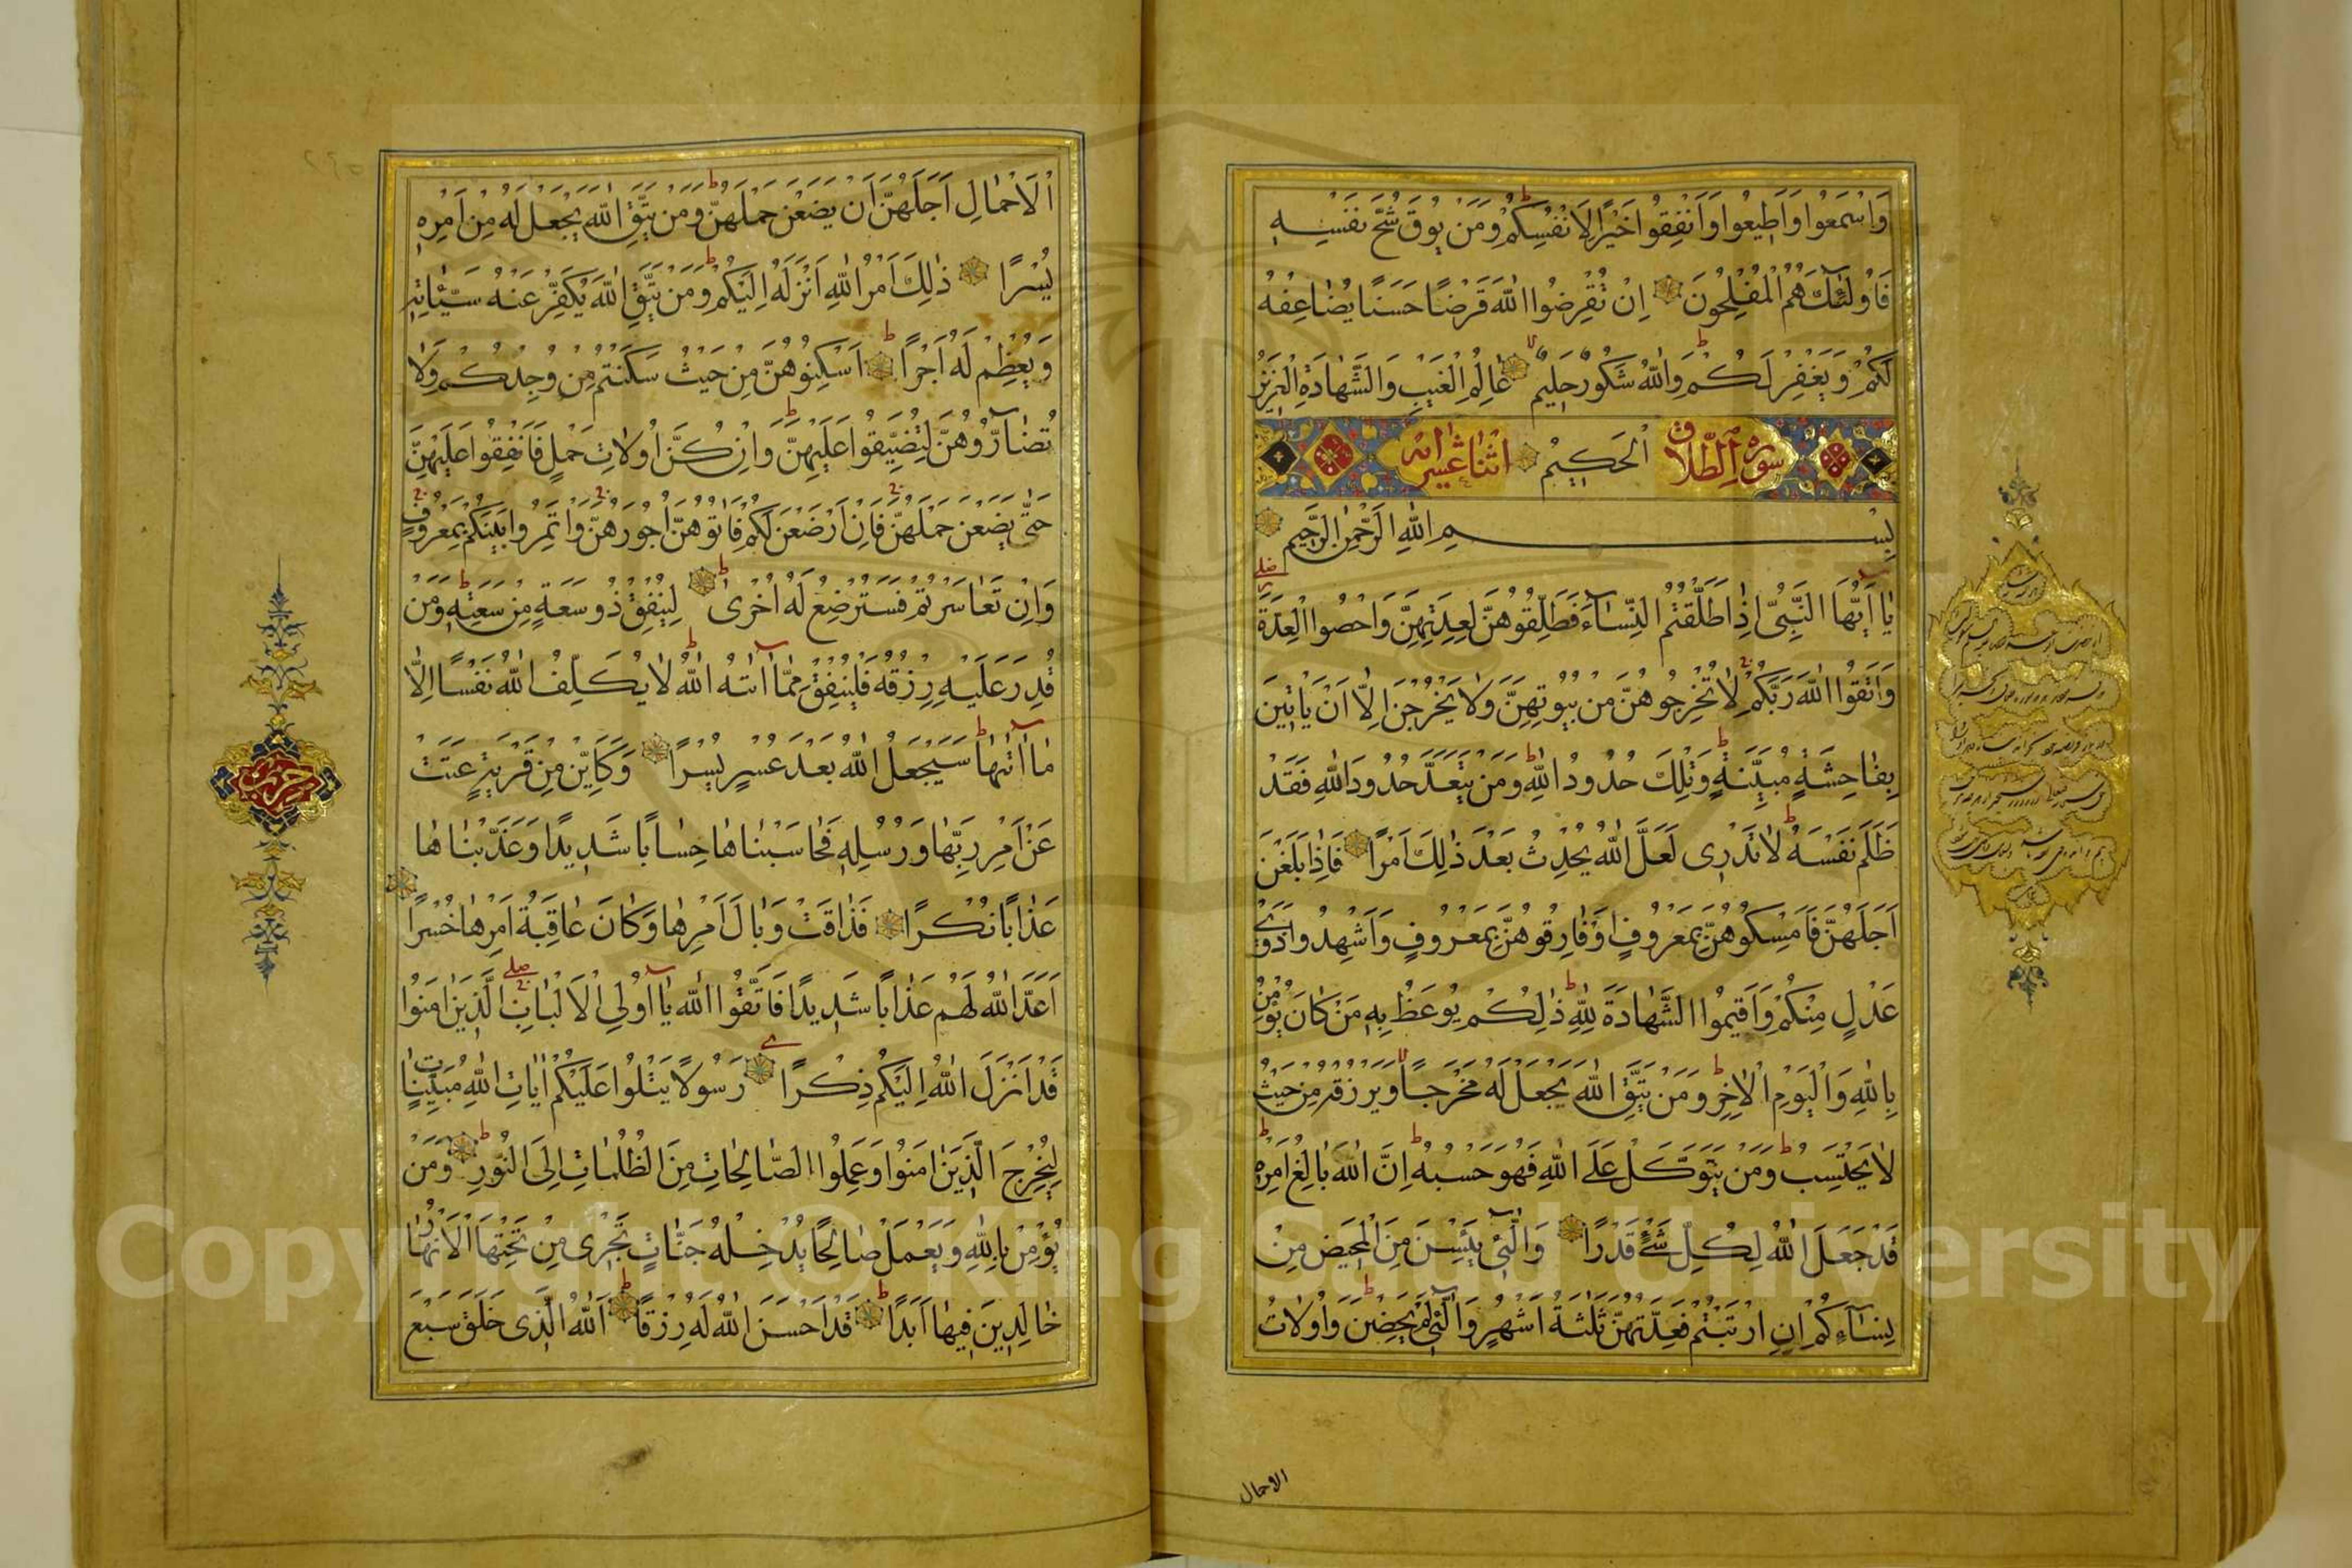 وَاسْمَعُوا وَاَطِيعُوا وَاَنْفِقُوا خَيْرًا لِاَنْفُسِكُمْ وَمَنْ يُوقَ شُحَّ نَفْسِهِ
فَاُولٰئِكَ هُمُ الْمُفْلِحُونَ اِنْ تُقْرِضُوا اللّٰهَ قَرْضًا حَسَنًا يُضَاعِفْهُ
لَكُمْ وَيَغْفِرْ لَكُمْ وَاللّٰهُ شَكُورٌ حَلِيمٌ عَالِمُ الْغَيْبِ وَالشَّهَادَةِ الْعَزِيزُ
سورة الطلاق الْحَكِيمُ اثنا عشر اية
بِسْمِ اللّٰهِ الرَّحْمٰنِ الرَّحِيمِ
يَا اَيُّهَا النَّبِيُّ اِذَا طَلَّقْتُمُ النِّسَآءَ فَطَلِّقُوهُنَّ لِعِدَّتِهِنَّ وَاَحْصُوا الْعِدَّةَ
وَاتَّقُوا اللّٰهَ رَبَّكُمْ لَا تُخْرِجُوهُنَّ مِنْ بُيُوتِهِنَّ وَلَا يَخْرُجْنَ اِلَّا اَنْ يَاْتِينَ
بِفَاحِشَةٍ مُبَيِّنَةٍ وَتِلْكَ حُدُودُ اللّٰهِ وَمَنْ يَتَعَدَّ حُدُودَ اللّٰهِ فَقَدْ
ظَلَمَ نَفْسَهُ لَا تَدْرِى لَعَلَّ اللّٰهَ يُحْدِثُ بَعْدَ ذٰلِكَ اَمْرًا فَاِذَا بَلَغْنَ
اَجَلَهُنَّ فَاَمْسِكُوهُنَّ بِمَعْرُوفٍ اَوْ فَارِقُوهُنَّ بِمَعْرُوفٍ وَاَشْهِدُوا ذَوَىْ
عَدْلٍ مِنْكُمْ وَاَقِيمُوا الشَّهَادَةَ لِلّٰهِ ذٰلِكُمْ يُوعَظُ بِهِ مَنْ كَانَ يُؤْمِنُ
بِاللّٰهِ وَالْيَوْمِ الْاٰخِرِ وَمَنْ يَتَّقِ اللّٰهَ يَجْعَلْ لَهُ مَخْرَجًا وَيَرْزُقْهُ مِنْ حَيْثُ
لَا يَحْتَسِبُ وَمَنْ يَتَوَكَّلْ عَلَى اللّٰهِ فَهُوَ حَسْبُهُ اِنَّ اللّٰهَ بَالِغُ اَمْرِهِ
قَدْ جَعَلَ اللّٰهُ لِكُلِّ شَىْءٍ قَدْرًا وَالّٰٓئِى يَئِسْنَ مِنَ الْمَحِيضِ مِنْ
نِسَآءِكُمْ اِنِ ارْتَبْتُمْ فَعِدَّتُهُنَّ ثَلٰثَةُ اَشْهُرٍ وَالّٰٓئِى لَمْ يَحِضْنَ وَاُولَاتُ
الاحمال
الْاَحْمَالِ اَجَلُهُنَّ اَنْ يَضَعْنَ حَمْلَهُنَّ وَمَنْ يَتَّقِ اللّٰهَ يَجْعَلْ لَهُ مِنْ اَمْرِهِ
يُسْرًا ذٰلِكَ اَمْرُ اللّٰهِ اَنْزَلَهُ اِلَيْكُمْ وَمَنْ يَتَّقِ اللّٰهَ يُكَفِّرْ عَنْهُ سَيِّئَاتِهِ
وَيُعْظِمْ لَهُ اَجْرًا اَسْكِنُوهُنَّ مِنْ حَيْثُ سَكَنْتُمْ مِنْ وُجْدِكُمْ وَلَا
تُضَآرُّوهُنَّ لِتُضَيِّقُوا عَلَيْهِنَّ وَاِنْ كُنَّ اُولَاتِ حَمْلٍ فَاَنْفِقُوا عَلَيْهِنَّ
حَتّٰى يَضَعْنَ حَمْلَهُنَّ فَاِنْ اَرْضَعْنَ لَكُمْ فَاٰتُوهُنَّ اُجُورَهُنَّ وَاْتَمِرُوا بَيْنَكُمْ بِمَعْرُوفٍ
وَاِنْ تَعَاسَرْتُمْ فَسَتُرْضِعُ لَهُ اُخْرٰى لِيُنْفِقْ ذُو سَعَةٍ مِنْ سَعَتِهِ وَمَنْ
قُدِرَ عَلَيْهِ رِزْقُهُ فَلْيُنْفِقْ مِمَّا اٰتٰهُ اللّٰهُ لَا يُكَلِّفُ اللّٰهُ نَفْسًا اِلَّا
مَا اٰتٰهَا سَيَجْعَلُ اللّٰهُ بَعْدَ عُسْرٍ يُسْرًا وَكَاَيِّنْ مِنْ قَرْيَةٍ عَتَتْ
عَنْ اَمْرِ رَبِّهَا وَرُسُلِهِ فَحَاسَبْنَاهَا حِسَابًا شَدِيدًا وَعَذَّبْنَاهَا
عَذَابًا نُكْرًا فَذَاقَتْ وَبَالَ اَمْرِهَا وَكَانَ عَاقِبَةُ اَمْرِهَا خُسْرًا
اَعَدَّ اللّٰهُ لَهُمْ عَذَابًا شَدِيدًا فَاتَّقُوا اللّٰهَ يَا اُولِى الْاَلْبَابِ الَّذِينَ اٰمَنُوا
قَدْ اَنْزَلَ اللّٰهُ اِلَيْكُمْ ذِكْرًا رَسُولًا يَتْلُوا عَلَيْكُمْ اٰيَاتِ اللّٰهِ مُبَيِّنَاتٍ
لِيُخْرِجَ الَّذِينَ اٰمَنُوا وَعَمِلُوا الصَّالِحَاتِ مِنَ الظُّلُمَاتِ اِلَى النُّورِ وَمَنْ
يُؤْمِنْ بِاللّٰهِ وَيَعْمَلْ صَالِحًا يُدْخِلْهُ جَنَّاتٍ تَجْرِى مِنْ تَحْتِهَا الْاَنْهَارُ
خَالِدِينَ فِيهَا اَبَدًا قَدْ اَحْسَنَ اللّٰهُ لَهُ رِزْقًا اَللّٰهُ الَّذِى خَلَقَ سَبْعَ
حزب
Copyright © King Saud University